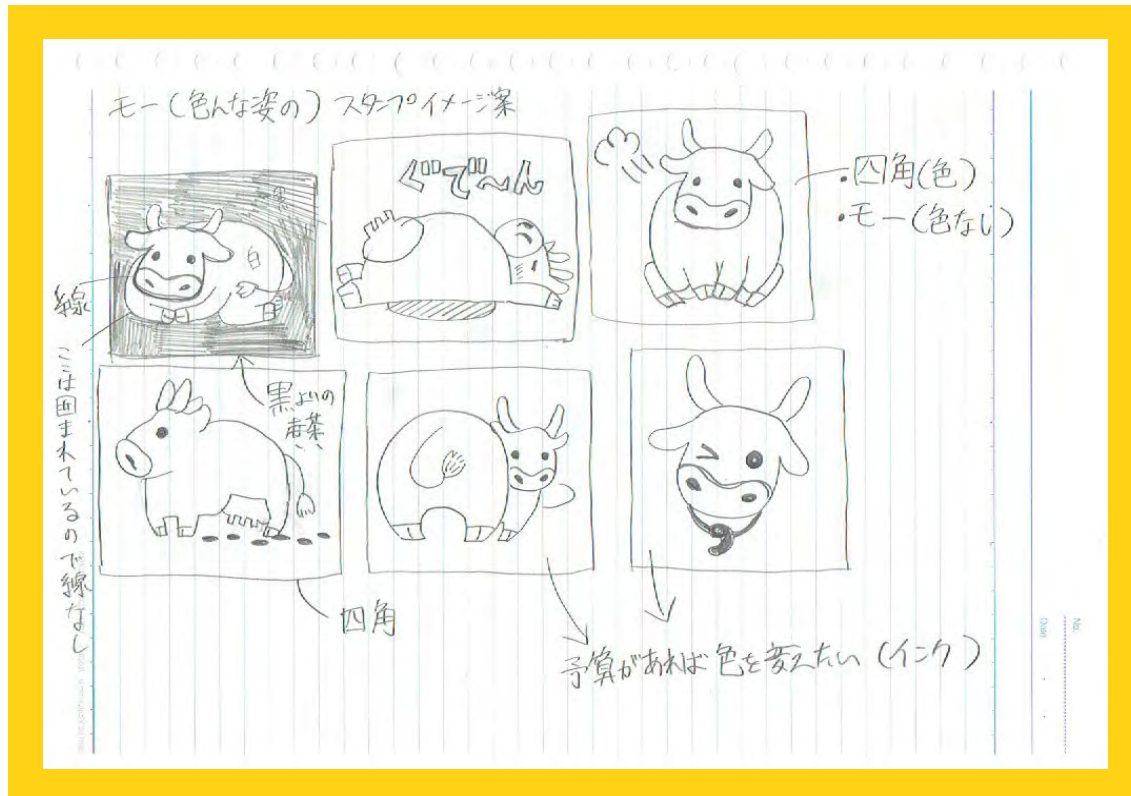 モー(色んな姿の)スタンプイメージ案
ぐで〜ん
・四角(色)
・モー(色なし)
白
線
ここは囲まれているので線なし
黒よりの
四角
予算があれば色を変えたい(インク)
No.
Date